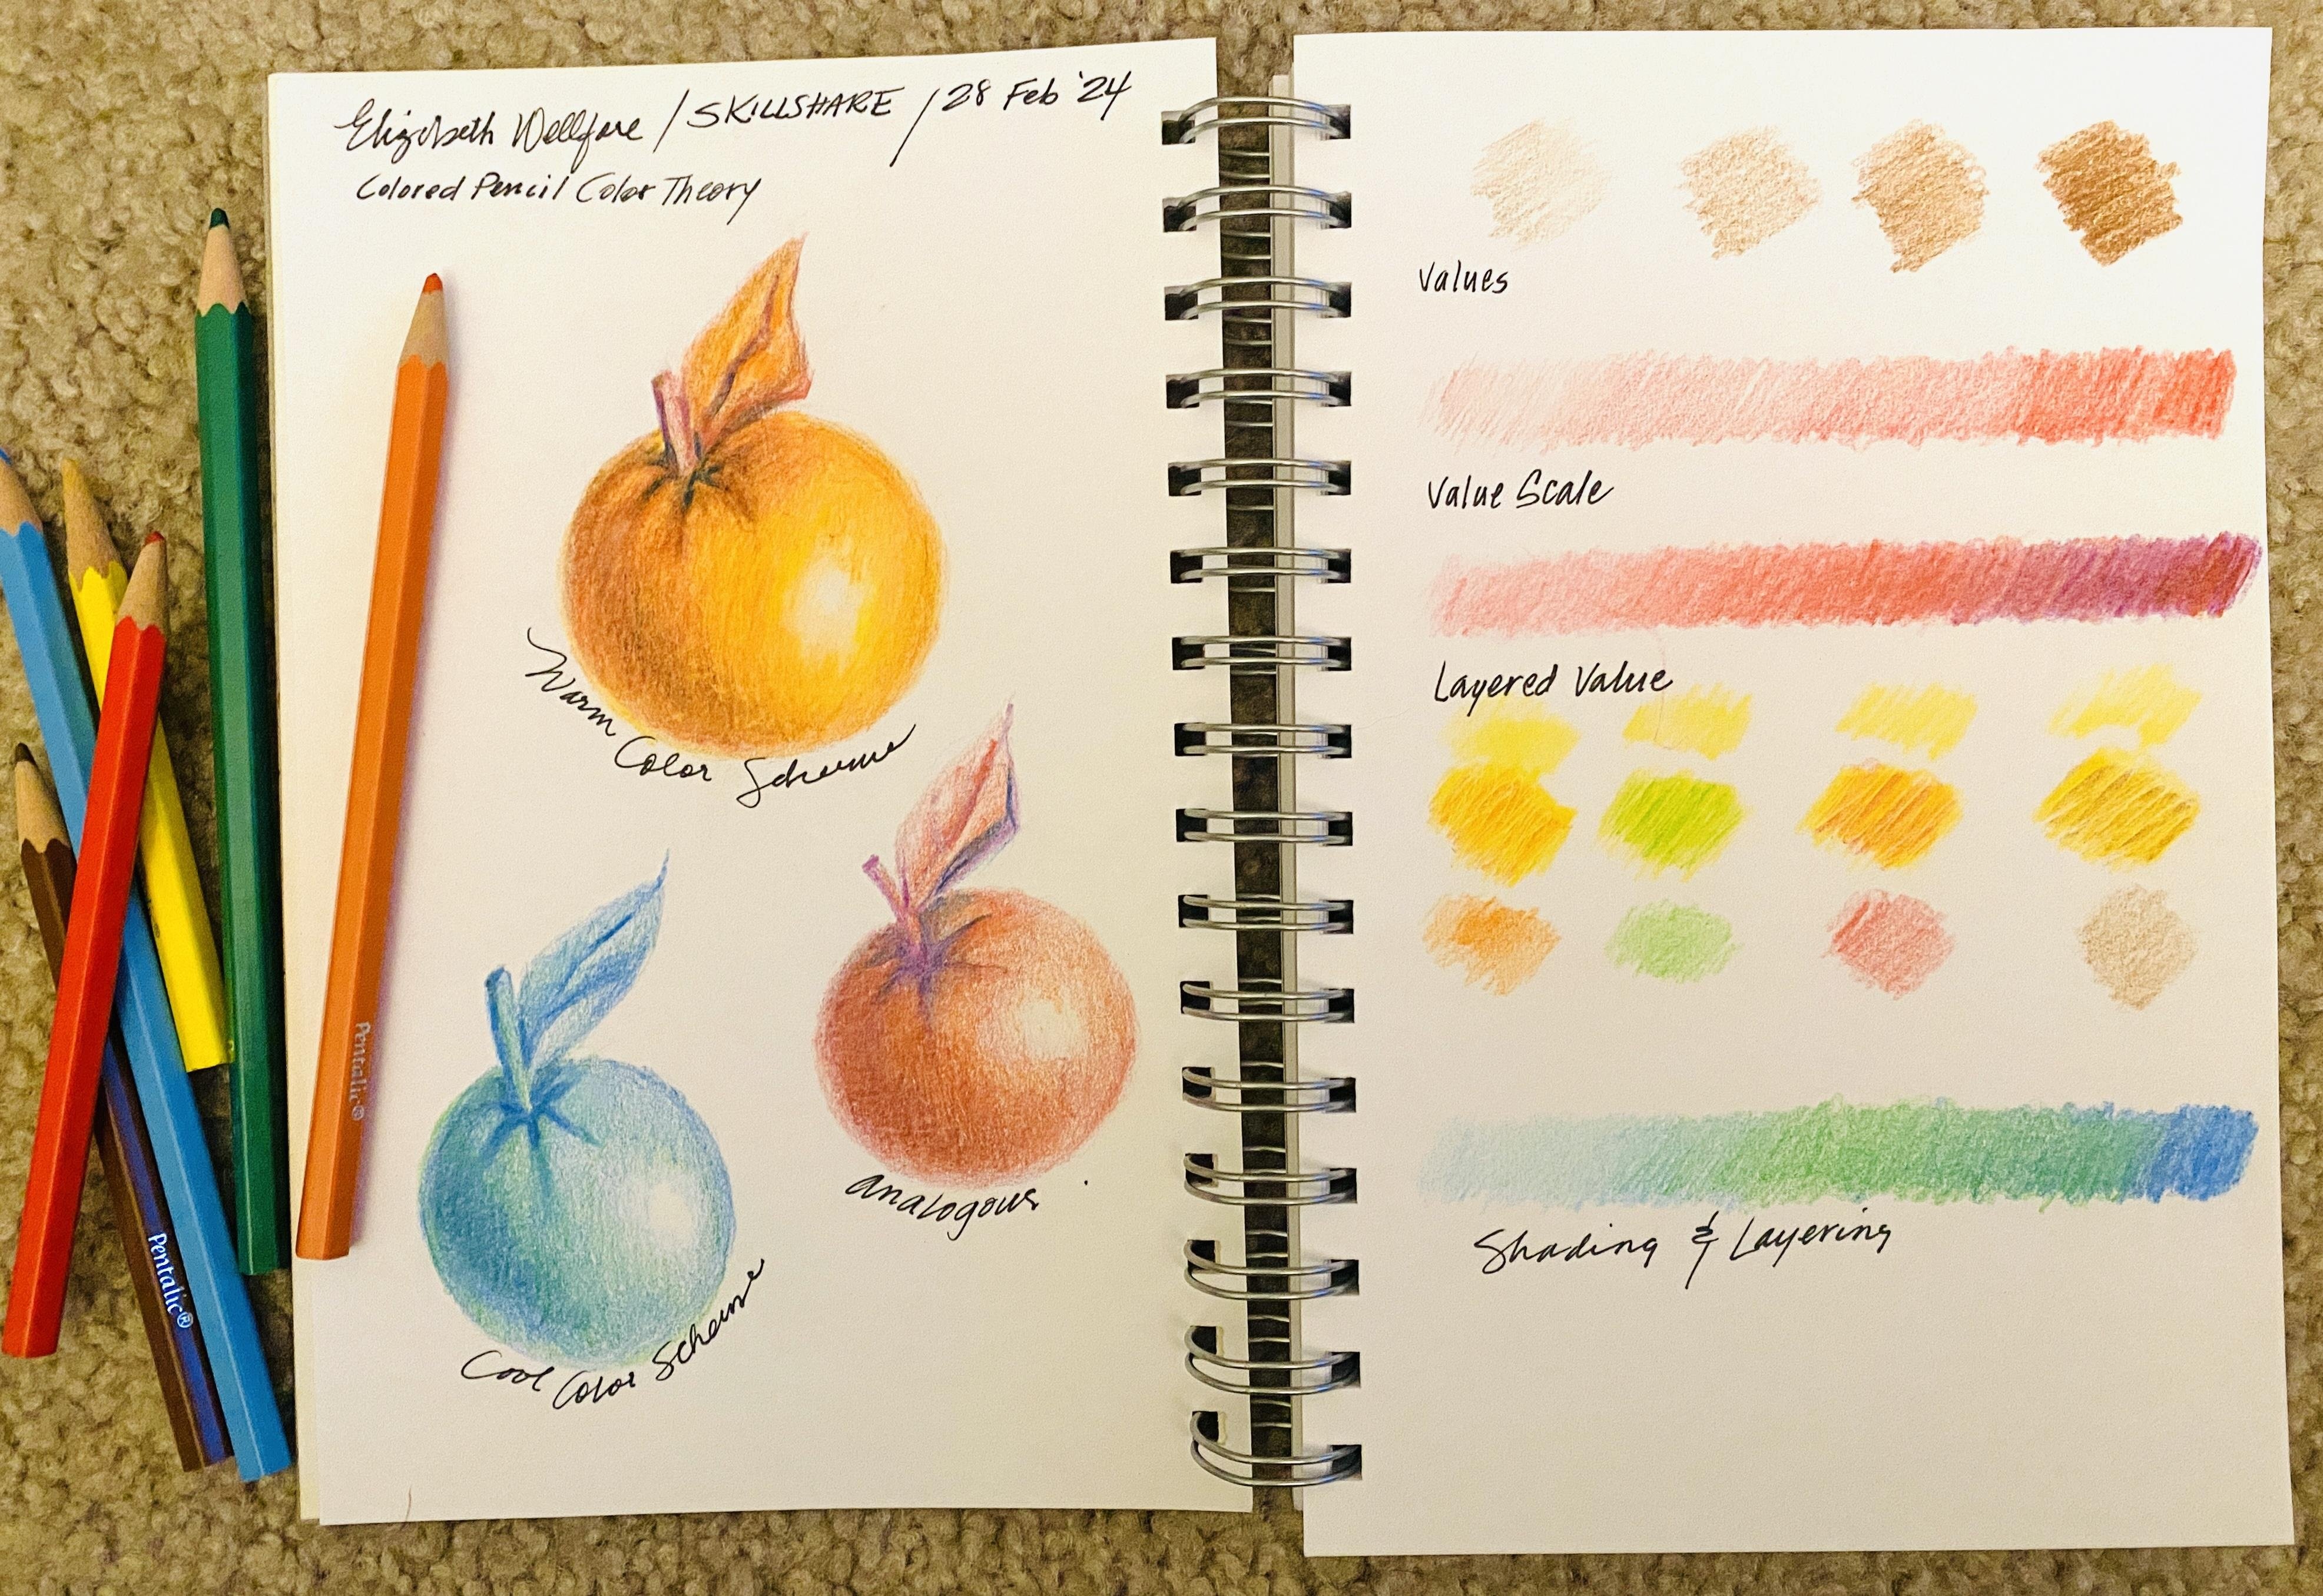 Elizabeth Wellfare / SKILLSHARE / 28 Feb '24
Colored Pencil Color Theory
Warm Color Scheme
analogous
Cool Color Scheme
Pentalic®
Pentalic®
Values
Value Scale
Layered Value
Shading & Layering